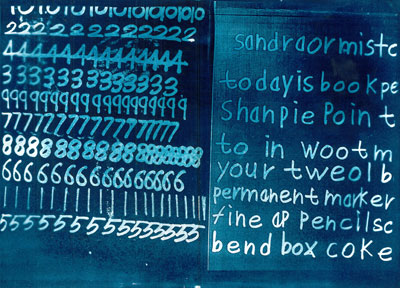 101010101010101010
2222222222222
4444444444444
3333333333333
9999999999999999
77777777777777
888888888888888888
66666666666666
1111111111111111111
5555555555555
sandraormistc
todayisbookpe
Shanpie Point
to in wootm
your tweolb
permanent marker
fine ap Pencilsc
bend box coke